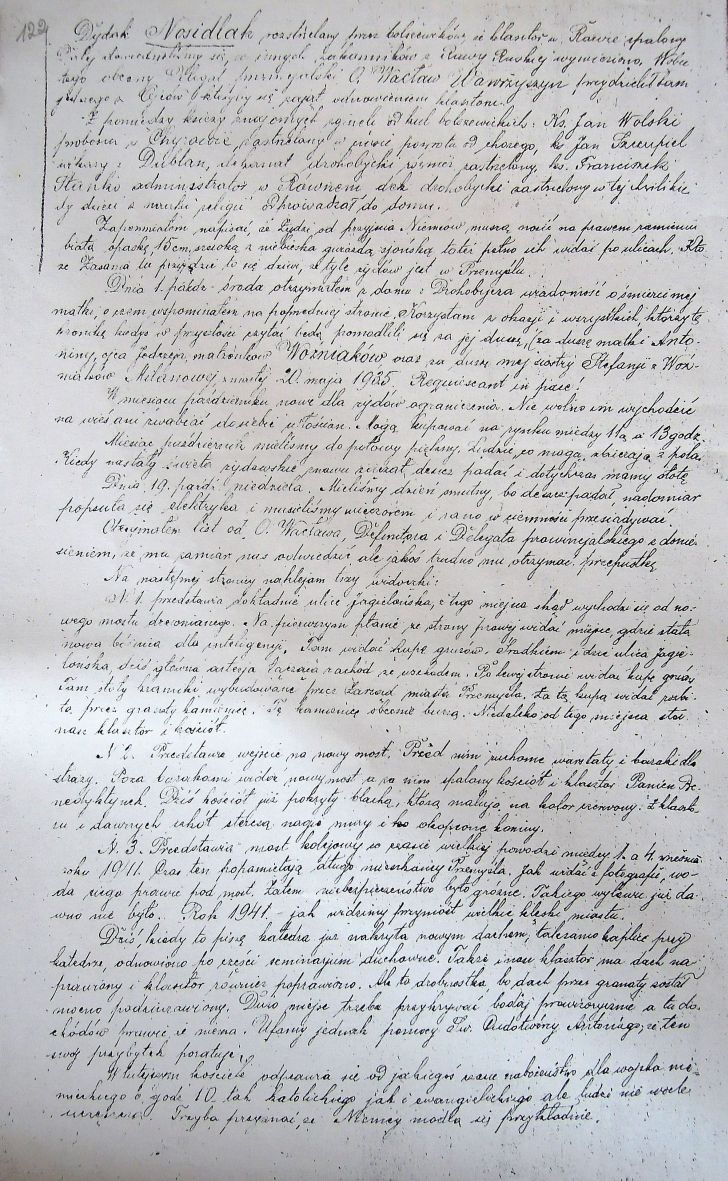 122
Dydak Nosidlak rozstrzelany przez bolszewików, że klasztor w Rawie spalony
dowiedzieliśmy się, że innych zakonników z Rawy Ruskiej wywieziono. Wobec
tego obecny Delegat prowincjalski O. Wacław Wawrzyszyn przydzielił tam
jednego z Ojców ażeby się zajął odnowieniem klasztoru.
Z pomiędzy księży znajomych zginęli od kul bolszewickich: Ks. Jan Wolski
proboszcz w Chyrowie zastrzelony w powrotu od chorego, ks. Jan Szczupiel
wikary z Dublan, dekanat drohobycki również zastrzelony, ks. Franciszek
Stańko administrator w Równem dek. drohobycki zastrzelony w tej chwili kie-
dy dzieci z nauki religii odprowadzał do domu.
Zapomniałem napisać, że Żydzi od przyjścia Niemców muszą nosić na prawem ramieniu
białą opaskę, 15 cm. szeroką z niebieską gwiazdą syjońską toteż pełno ich widać po ulicach. Kto
ze Zasania tu przyjdzie to się dziwi, że tyle żydów jest w Przemyślu.
Dnia 1. paźdz. środa otrzymałem z domu z Drohobycza wiadomość o śmierci mej
matki, o czem wspominałem na poprzedniej stronie. Korzystam z okazji i wszystkich, którzy tę
kronikę kiedyś w przyszłości czytać będą pomodlili się za jej duszę, (za duszę matki Anto-
niny, ojca Jędrzeja, małżonków Woźniaków oraz za duszę mej siostry Stefanji z Woź-
niaków Milanowej zmarłej 20 maja 1935. Requiescant in pace!
W miesiącu październiku nowe dla żydów ograniczenia. Nie wolno im wychodzić
na wieś ani zwabiać do siebie włościan. Mogą kupować na rynku między 11 a 13 godz.
Miesiąc październik mieliśmy do połowy piękny. Ludzie, co mogą, zbierają z pola.
Kiedy nastały święta żydowskie, znowu zaczął deszcz padać i dotychczas mamy słotę
Dnia 19. paźdź. niedziela. Mieliśmy dzień smutny, bo deszcz padał, nadomiar
popsuła się elektryka i musieliśmy wieczorem i rano w ciemności przesiadywać.
Otrzymałem list od O. Wacława, Definitora i Delegata prowincjalskiego z donie-
sieniem, że ma zamiar nas odwiedzić ale jakoś trudno mu otrzymać przepustkę.
Na następnej stronie naklejam trzy widoczki:
N 1. przedstawia dokładnie ulicę Jagielońską, z tego miejsca skąd wychodzi się od no-
wego mostu drewnianego. Na pierwszym planie ze strony prawej widać miejsce, gdzie stała
nowa bóżnica dla inteligencji. Tam widać kupę gruzów. Środkiem idzie ulica Jagie-
lońska, dziś główna arterja łącząca zachód ze wschodem. Po lewej stronie widać kupę gruzów
Tam stały kramiki wybudowane przez Zarząd miasta Przemyśla. Za tą kupą widać rozbi-
tą przez granaty kamienicę. Tę kamienicę obecnie burzą. Niedaleko od tego miejsca stoi
nasz klasztor i kościół.
N 2. Przedstawia wejście na nowy most. Przed nim ruchome warsztaty i baraki dla
straży. Poza barakami widać nowy most a za nim spalony kościół i klasztor Panien Be-
nedyktynek. Dziś kościół już pokryty blachą, którą malują na kolor czerwony. Z klaszto-
ru i dawnych szkół sterczą nagie mury i okopcone kominy.
N. 3. Przedstawia most kolejowy w czasie wielkiej powodzi między 1. a 4. września
roku 1941. Czas ten popamiętają długo mieszkańcy Przemyśla. Jak widać z fotografii, wo-
da sięga prawie pod most. Zatem niebezpieczeństwo było groźne. Takiego wylewu już da-
wno nie było. Rok 1941. - jak widzimy przyniósł wielkie klęski miastu.
Dziś, kiedy to piszę katedra już nakryta nowym dachem, kaplice przy
katedrze, odnowiono po części seminaryum duchowne. Także i nasz klasztor ma dach na-
prawiony i klasztor również poprawiono. Ale to drobnostka, bo dach przez granaty został
mocno podziurawiony. Dużo miejsc trzeba przykrywać bodaj prowizorycznie a tu do-
chodów prawie że niema. Ufamy jednak pomocy Św. Cudotwórcy Antoniego, że ten
swój przybytek poratuje.
W tutejszym kościele odprawia się od jakiegoś czasu nabożeństwo dla wojska nie-
mieckiego o godz. 10. tak katolickiego jak i ewangielickiego ale ludzi nie wiele
Trzeba przyznać, że Niemcy modlą się przykładnie.